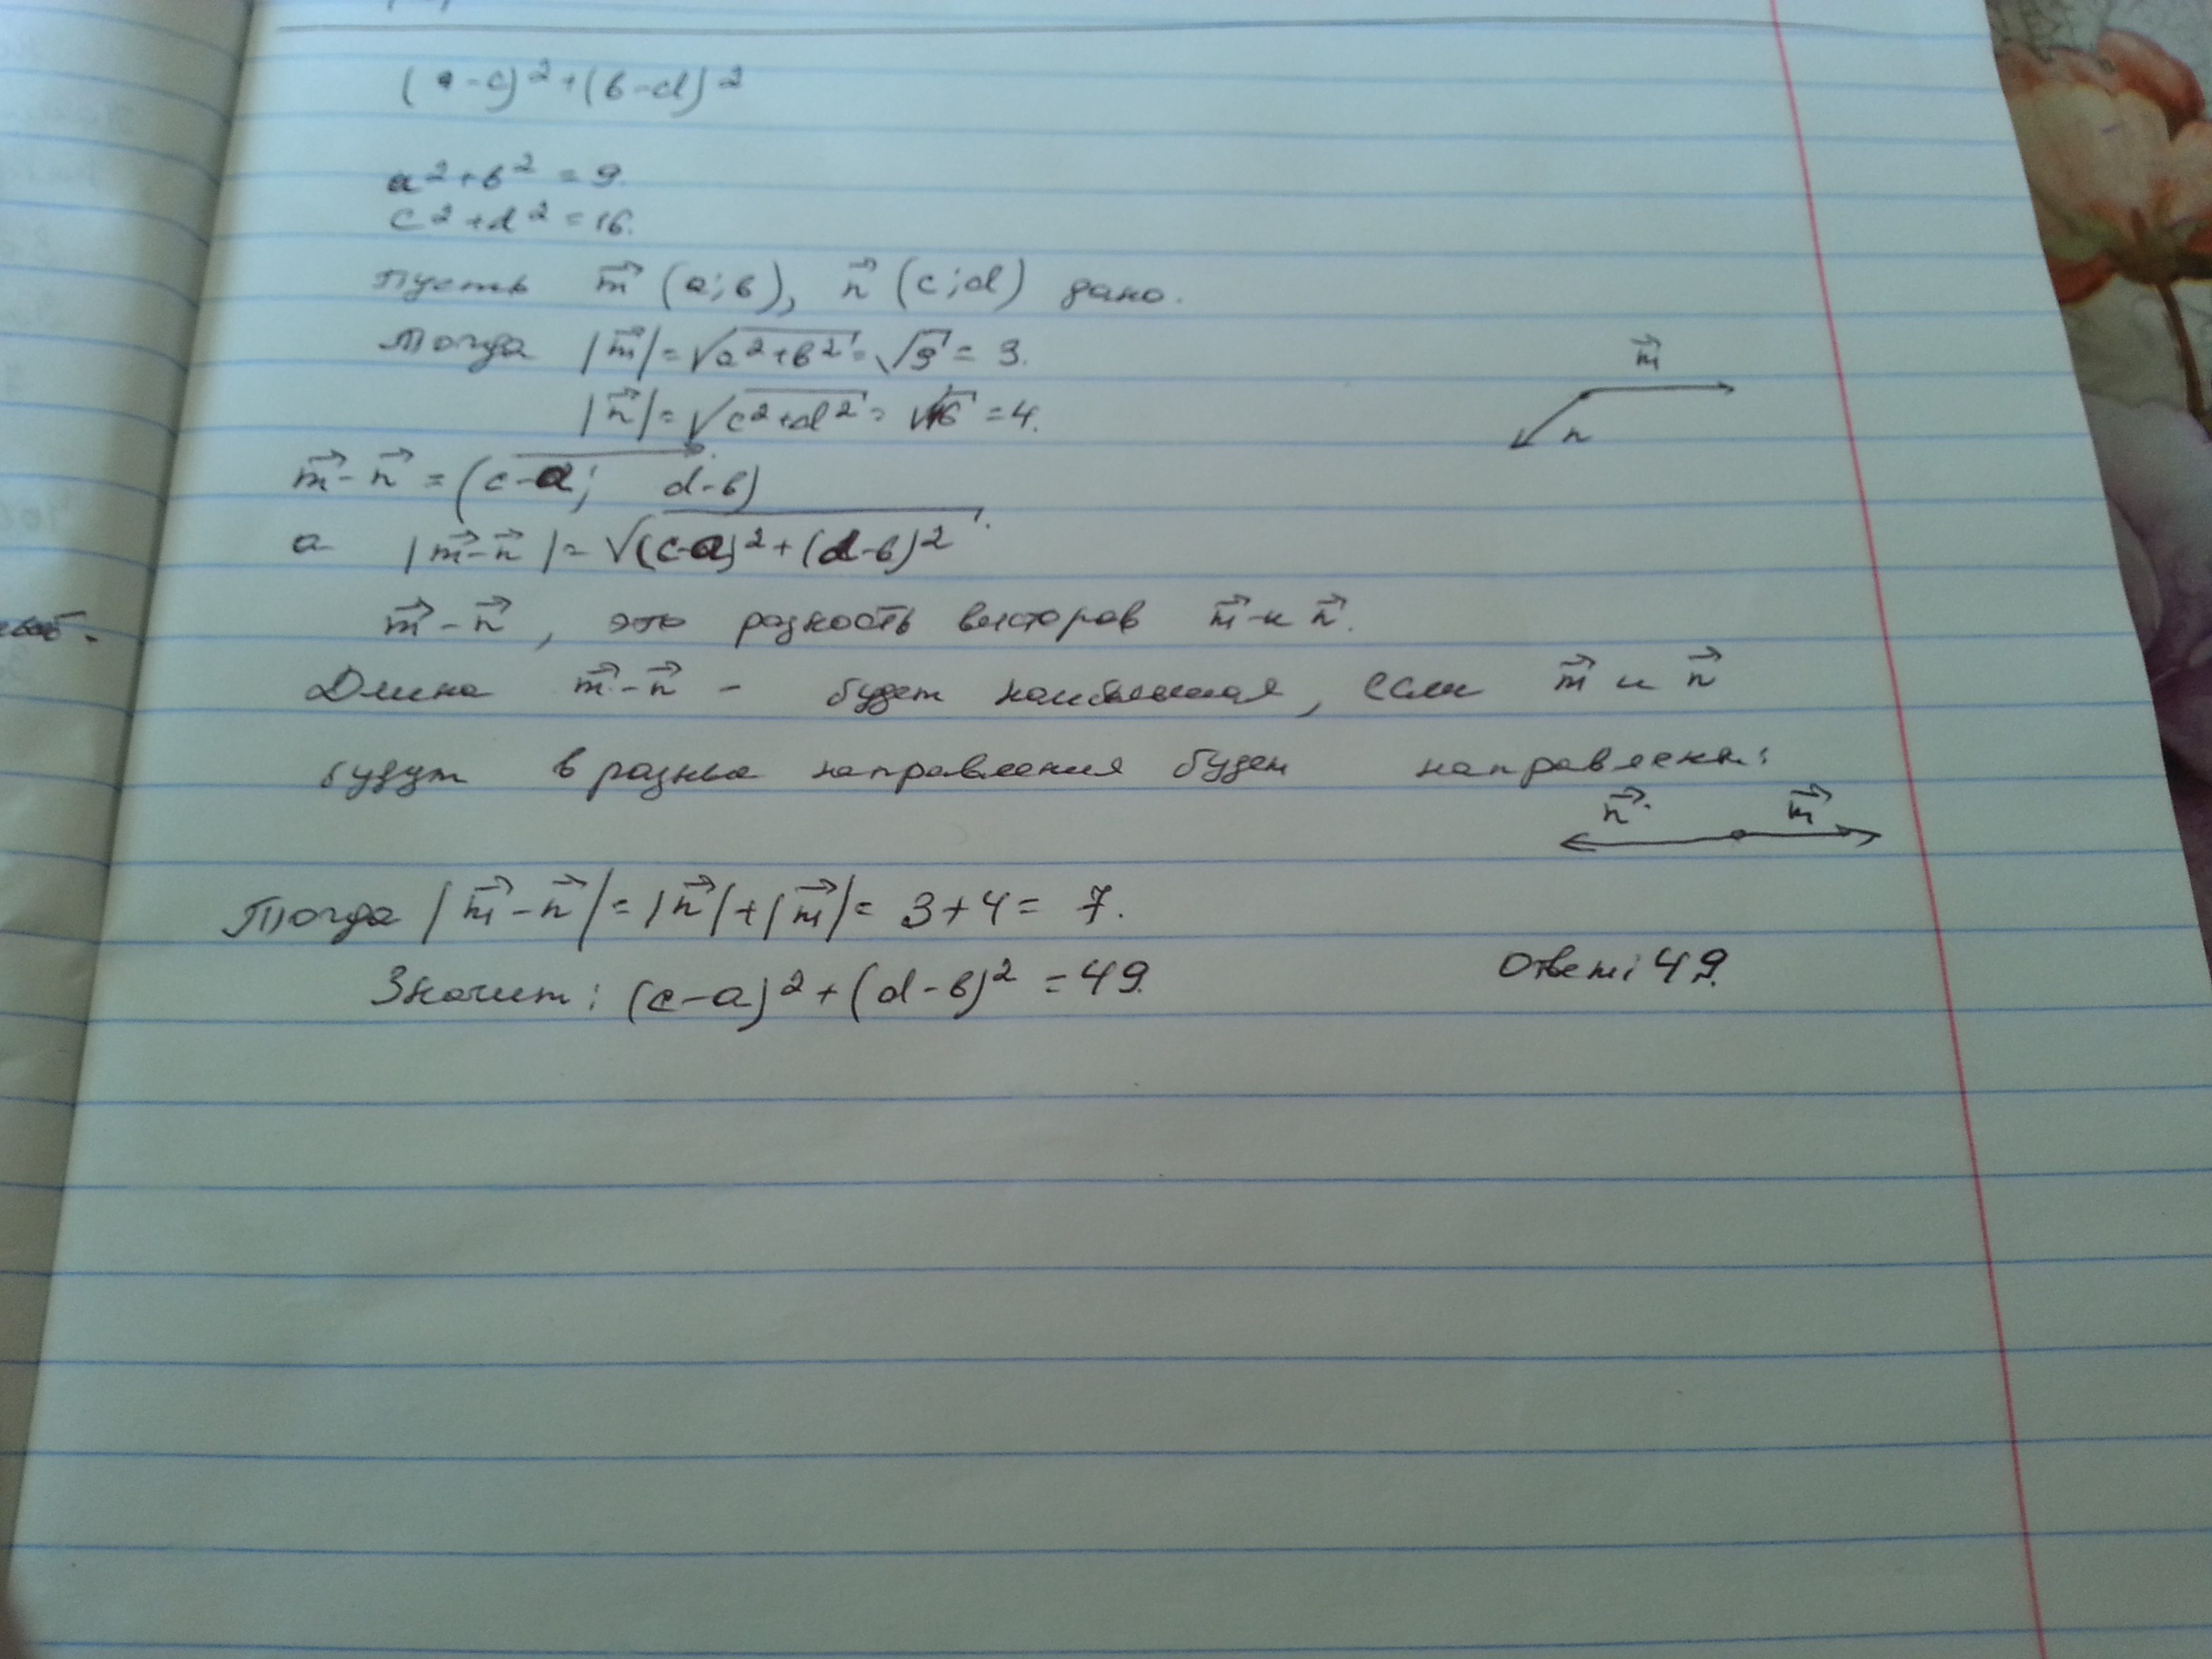 (a-c)²+(в-d)²
a²+в²=9.
c²+d²=16.
Пусть m⃗ (a;в), n⃗ (c;d) дано.
Тогда |m⃗|=√(a²+в²)=√9=3.
m⃗
|n⃗|=√(c²+d²)=√16=4.
n
m⃗-n⃗=(c-a; d-в)
а |m⃗-n⃗|=√((c-a)²+(d-в)²).
m⃗-n⃗, это разность векторов m⃗ и n⃗.
Длина m⃗-n⃗ - будет наибольшая, если m⃗ и n⃗
будут в разные направления будем направлены:
n⃗ m⃗
Тогда |m⃗-n⃗|=|n⃗|+|m⃗|=3+4=7.
Значит: (c-a)²+(d-в)²=49.
Ответ: 49.